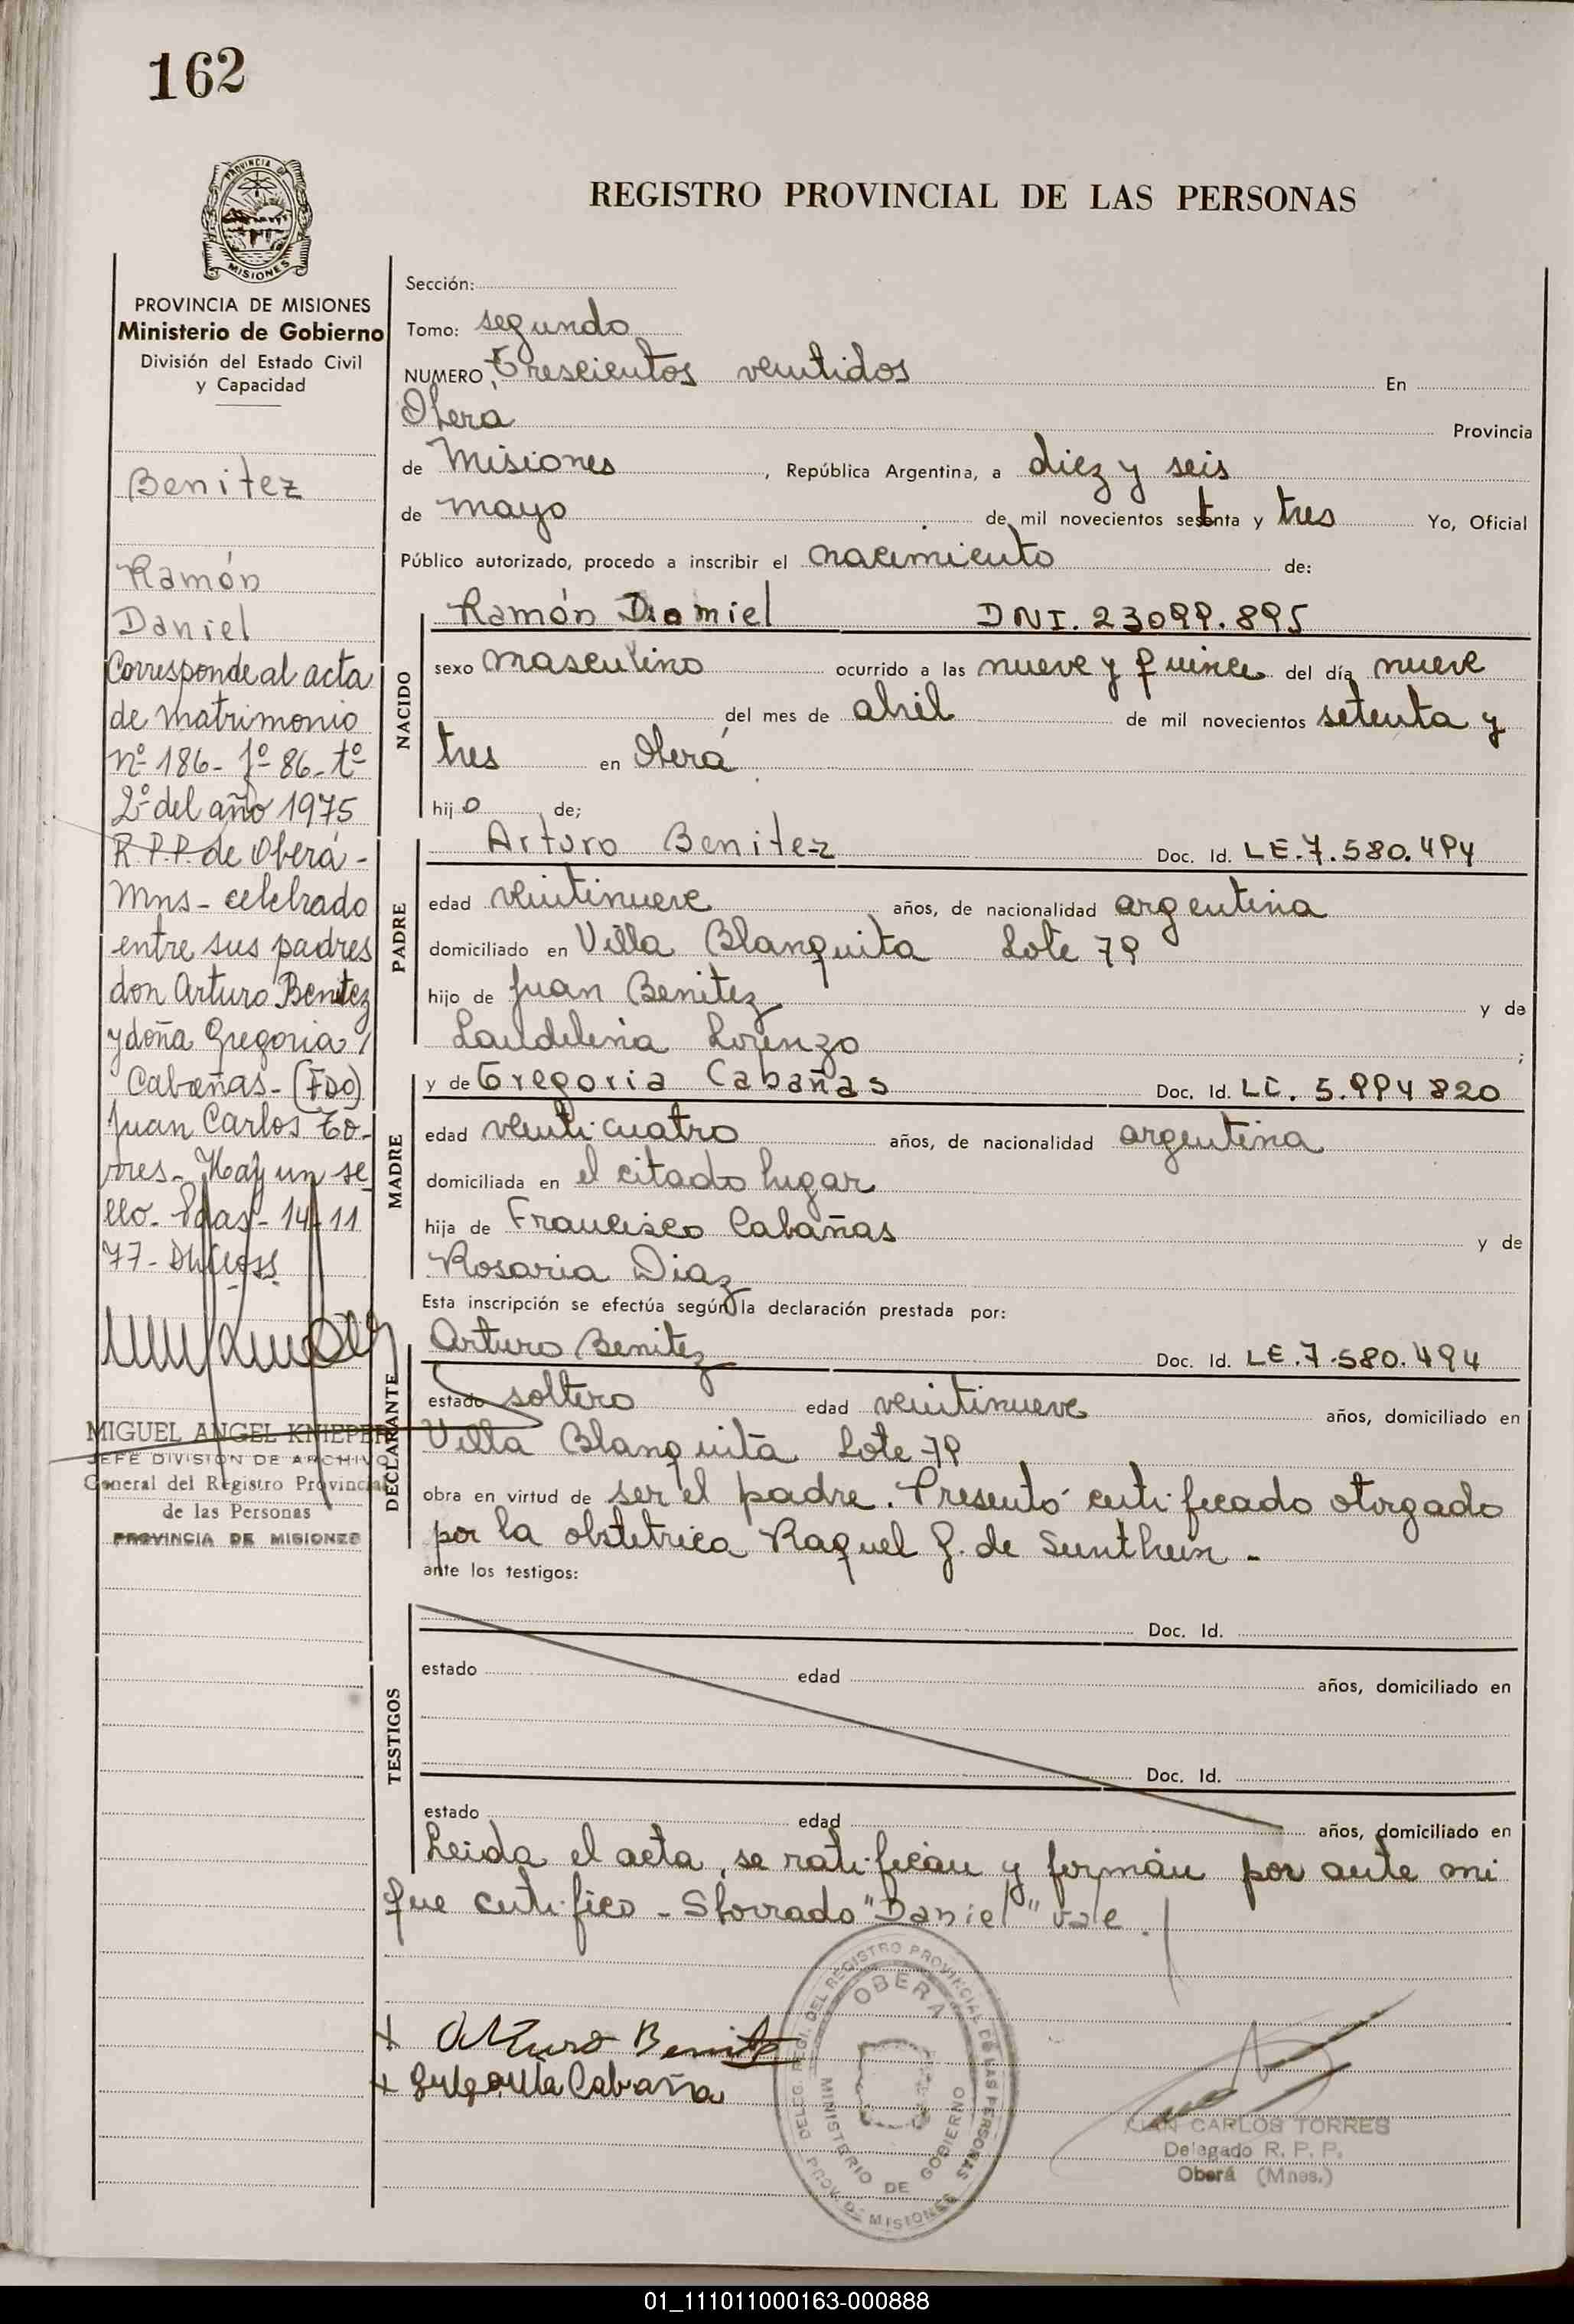 162
REGISTRO PROVINCIAL DE LAS PERSONAS
PROVINCIA DE MISIONES
PROVINCIA DE MISIONES
Ministerio de Gobierno
División del Estado Civil
y Capacidad
Benitez
Ramón
Daniel
Corresponde al acta
de matrimonio
nº 186 - fº 86 - tº
2º del año 1975
R.P.P. de Oberá -
Mns - celebrado
entre sus padres
don Arturo Benitez
y doña Gregoria
Cabañas - (FDO)
Juan Carlos To-
rres - Hay un se
llo - Pdas - 14-11
77 -
MIGUEL ANGEL KNIEPER
JEFE DIVISION DE ARCHIVO
General del Registro Provincial
de las Personas
PROVINCIA DE MISIONES
Sección:
Tomo: segundo
NUMERO, Trescientos veintidos En
Oberá Provincia
de Misiones, República Argentina, a diez y seis
de mayo de mil novecientos setenta y tres Yo, Oficial
Público autorizado, procedo a inscribir el nacimiento de:
NACIDO
Ramón Daniel DNI. 23099.895
sexo masculino ocurrido a las nueve y quince del día nueve
del mes de abril de mil novecientos setenta y
tres en Oberá
hijo de;
PADRE
Arturo Benitez Doc. Id. LE.7.580.494
edad veintinueve años, de nacionalidad argentina
domiciliado en Villa Blanquita Lote 79
hijo de Juan Benitez y de
Laudelina Lorenzo ;
MADRE
y de Gregoria Cabañas Doc. Id. LC. 5.994820
edad veinticuatro años, de nacionalidad argentina
domiciliada en el citado lugar
hija de Francisco Cabañas y de
Rosaria Diaz
Esta inscripción se efectúa según la declaración prestada por:
DECLARANTE
Arturo Benitez Doc. Id. LE.7.580.494
estado soltero edad veintinueve años, domiciliado en
Villa Blanquita Lote 79
obra en virtud de ser el padre. Presentó certificado otorgado
por la obstetrica Raquel G. de
ante los testigos:
TESTIGOS
Doc. Id.
estado edad años, domiciliado en
Doc. Id.
estado edad años, domiciliado en
Leida el acta, se ratifican y firman por ante mi
que certifico - S/borrado "Daniel" vale.
+ Arturo Benitez
+ Gregoria Cabaña
DELEG. REGI. DEL REGISTRO PROVINCIAL DE LAS PERSONAS
OBERA
MINISTERIO DE GOBIERNO
PROV. DE MISIONES
JUAN CARLOS TORRES
Delegado R. P. P.
Oberá (Mnes.)
01_111011000163-000888